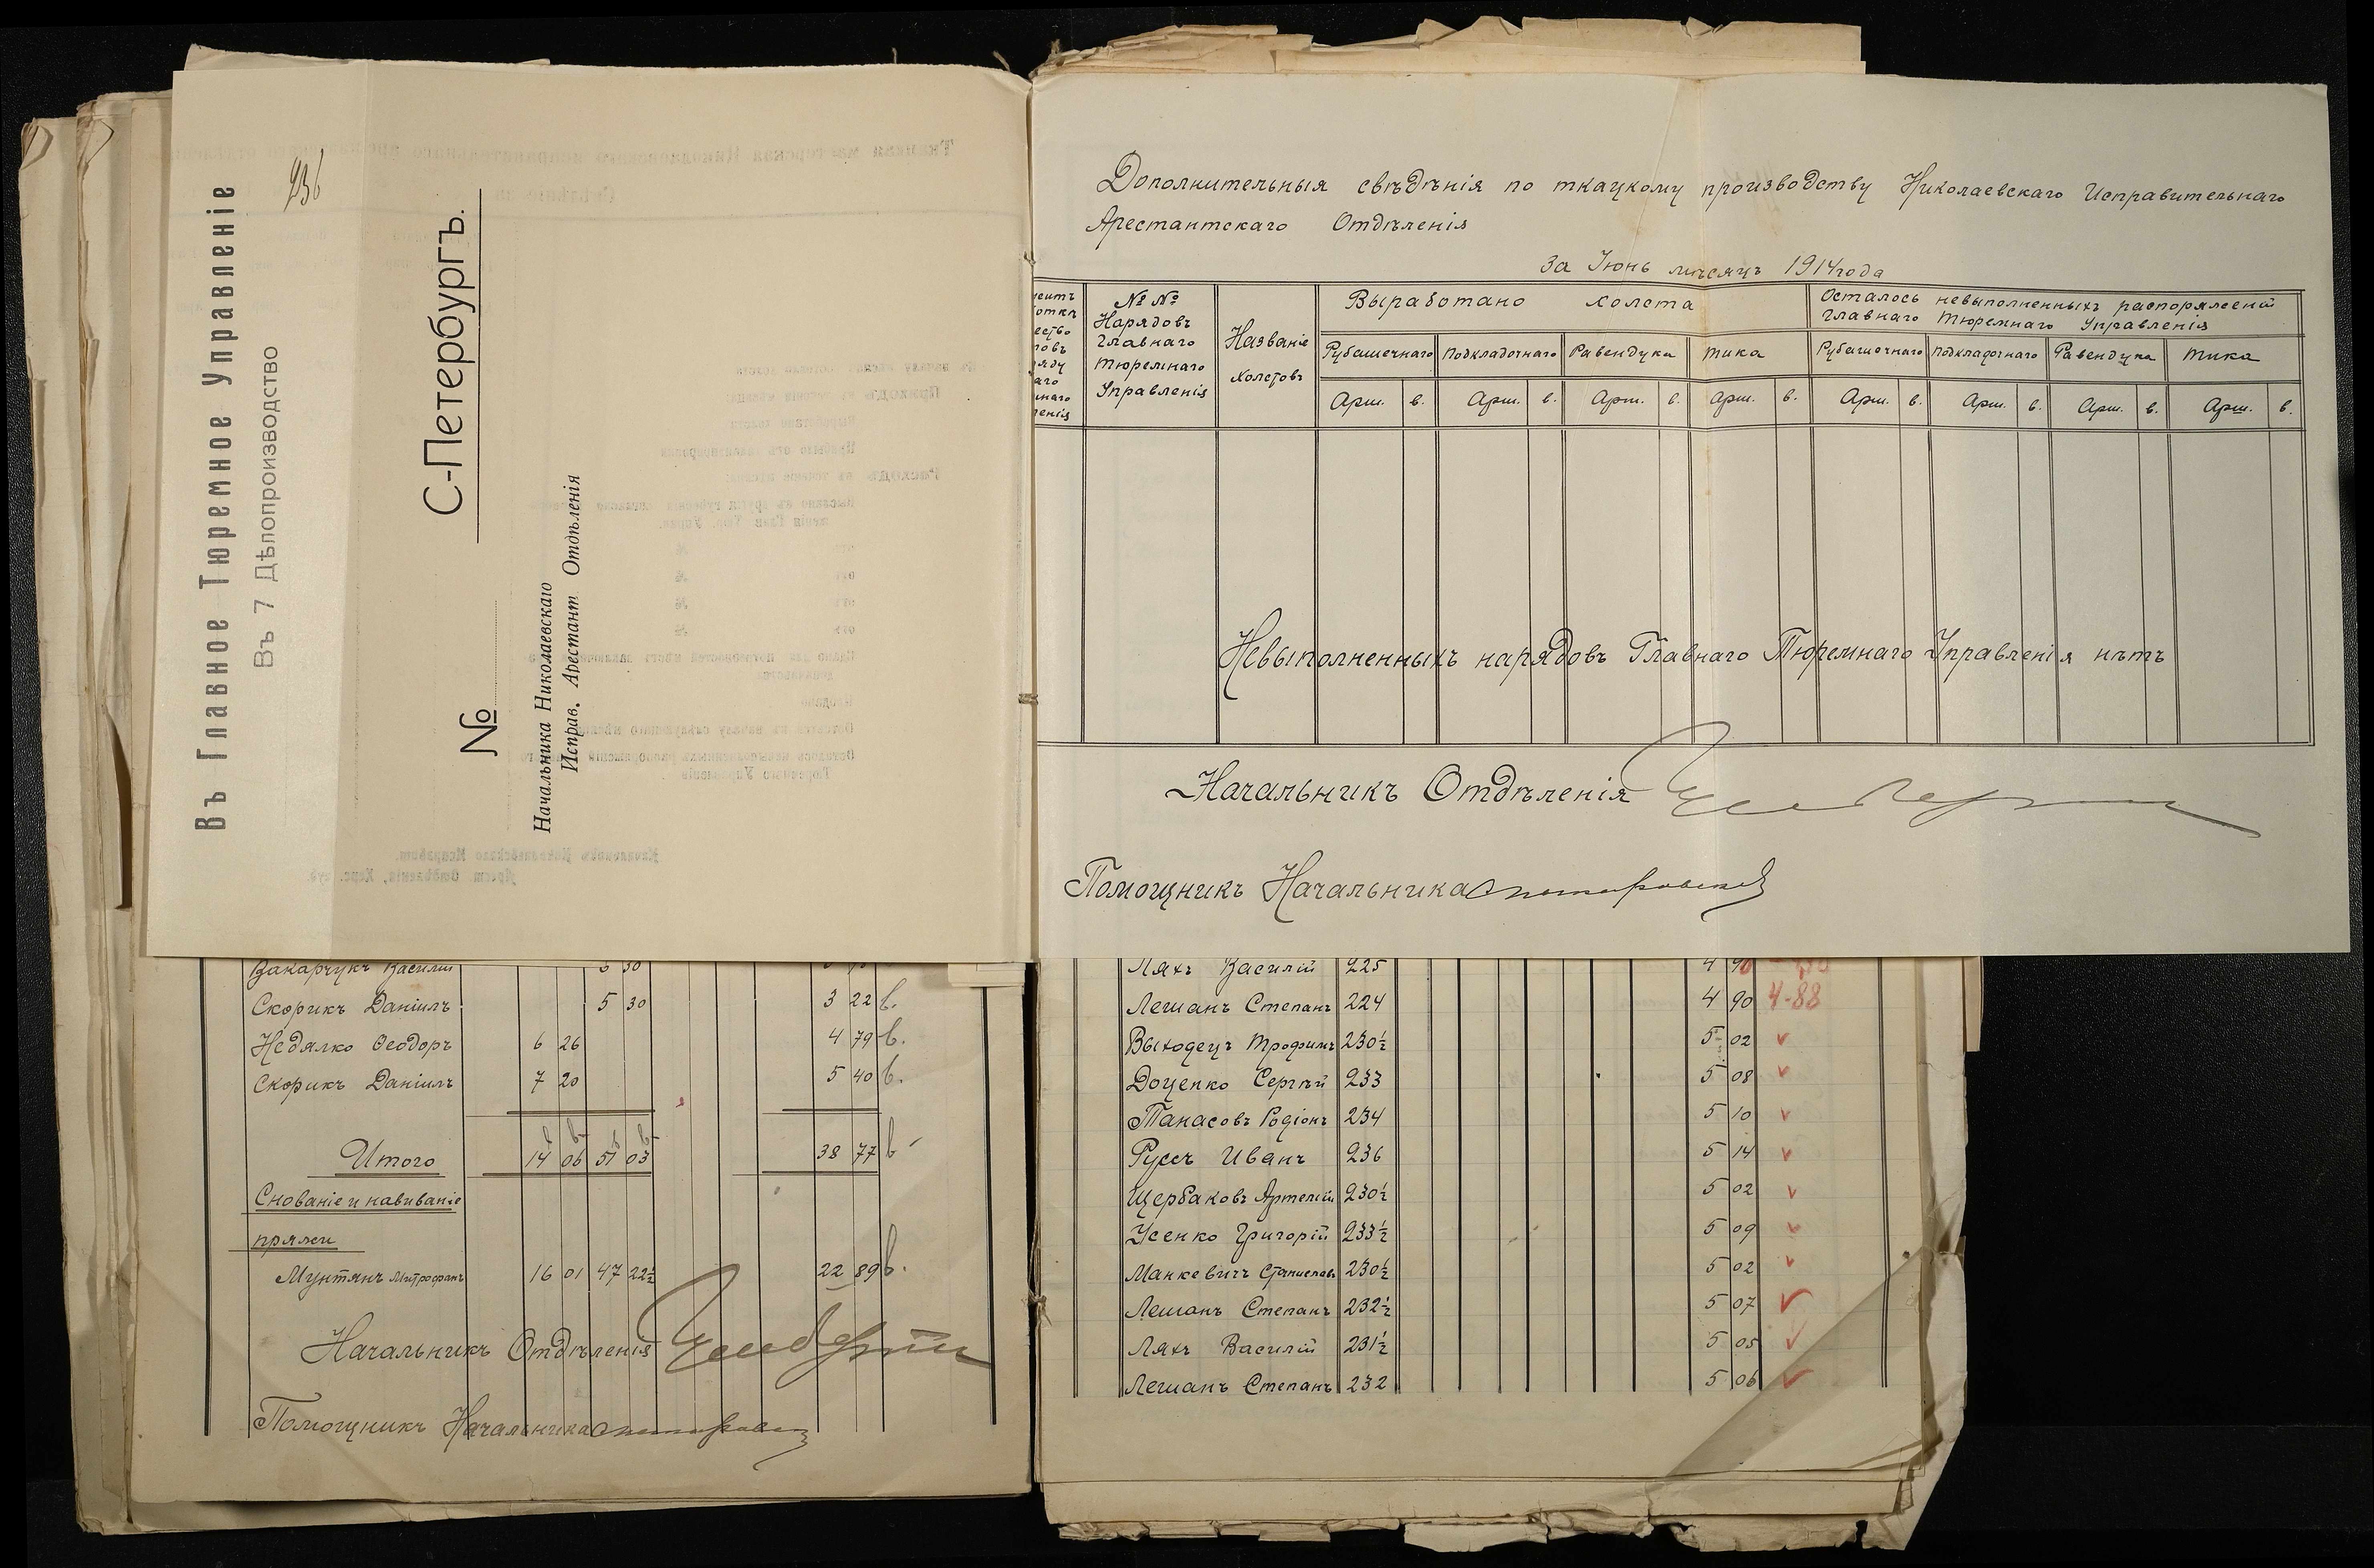 Въ Главное Тюремное Управленіе
Въ 7 Дѣлопроизводство
236
С-Петербургъ.
№
Начальника Николаевскаго
Исправ. Арестант Отдѣленія
Дополнительныя свѣдѣнія по ткацкому производству Николаевскаго Исправительнаго
Арестантскаго Отдѣленія
За Іюнь мѣсяцъ 1914 года
№ № Нарядовъ Главнаго Тюремнаго Управленія
Названіе холстовъ
Выработано холста
Осталось невыполненныхъ распоряженій
Главнаго Тюремнаго Управленія
Рубашечнаго Подкладочнаго Равендука Тика Рубашечнаго Подкладочнаго Равендука Тика
Арш. в. Арш. в. Арш. в. Арш. в. Арш. в. Арш. в. Арш. в. Арш. в.
Невыполненныхъ нарядовъ Главнаго Тюремнаго Управленія нѣтъ
Начальникъ Отдѣленія
Помощникъ Начальника
Закарчукъ Василій
Скорикъ Даніилъ 5 30 3 22 в.
Недялко Ѳеодоръ 6 26 4 79 в.
Скорикъ Даніилъ 7 20 5 40 в.
Итого 14 06 51 03 38 77 в
Снованіе и навиваніе
пряжи
Мунтянъ Митрофанъ 16 01 47 22½ 22 89 в.
Начальникъ Отдѣленія
Помощникъ Начальника
Ляхъ Василій 225 4 90
Лешанъ Степанъ 224 4 90 4-88
Выходецъ Трофимъ 230½ 5 02
Доценко Сергѣй 233 5 08
Танасовъ Родіонъ 234 5 10
Руссъ Иванъ 236 5 14
Щербаковъ Артемій 230½ 5 02
Усенко Григорій 233½ 5 09
Манкевичъ Станиславъ 230½ 5 02
Лешанъ Степанъ 232½ 5 07
Ляхъ Василій 231½ 5 05
Лешанъ Степанъ 232 5 06